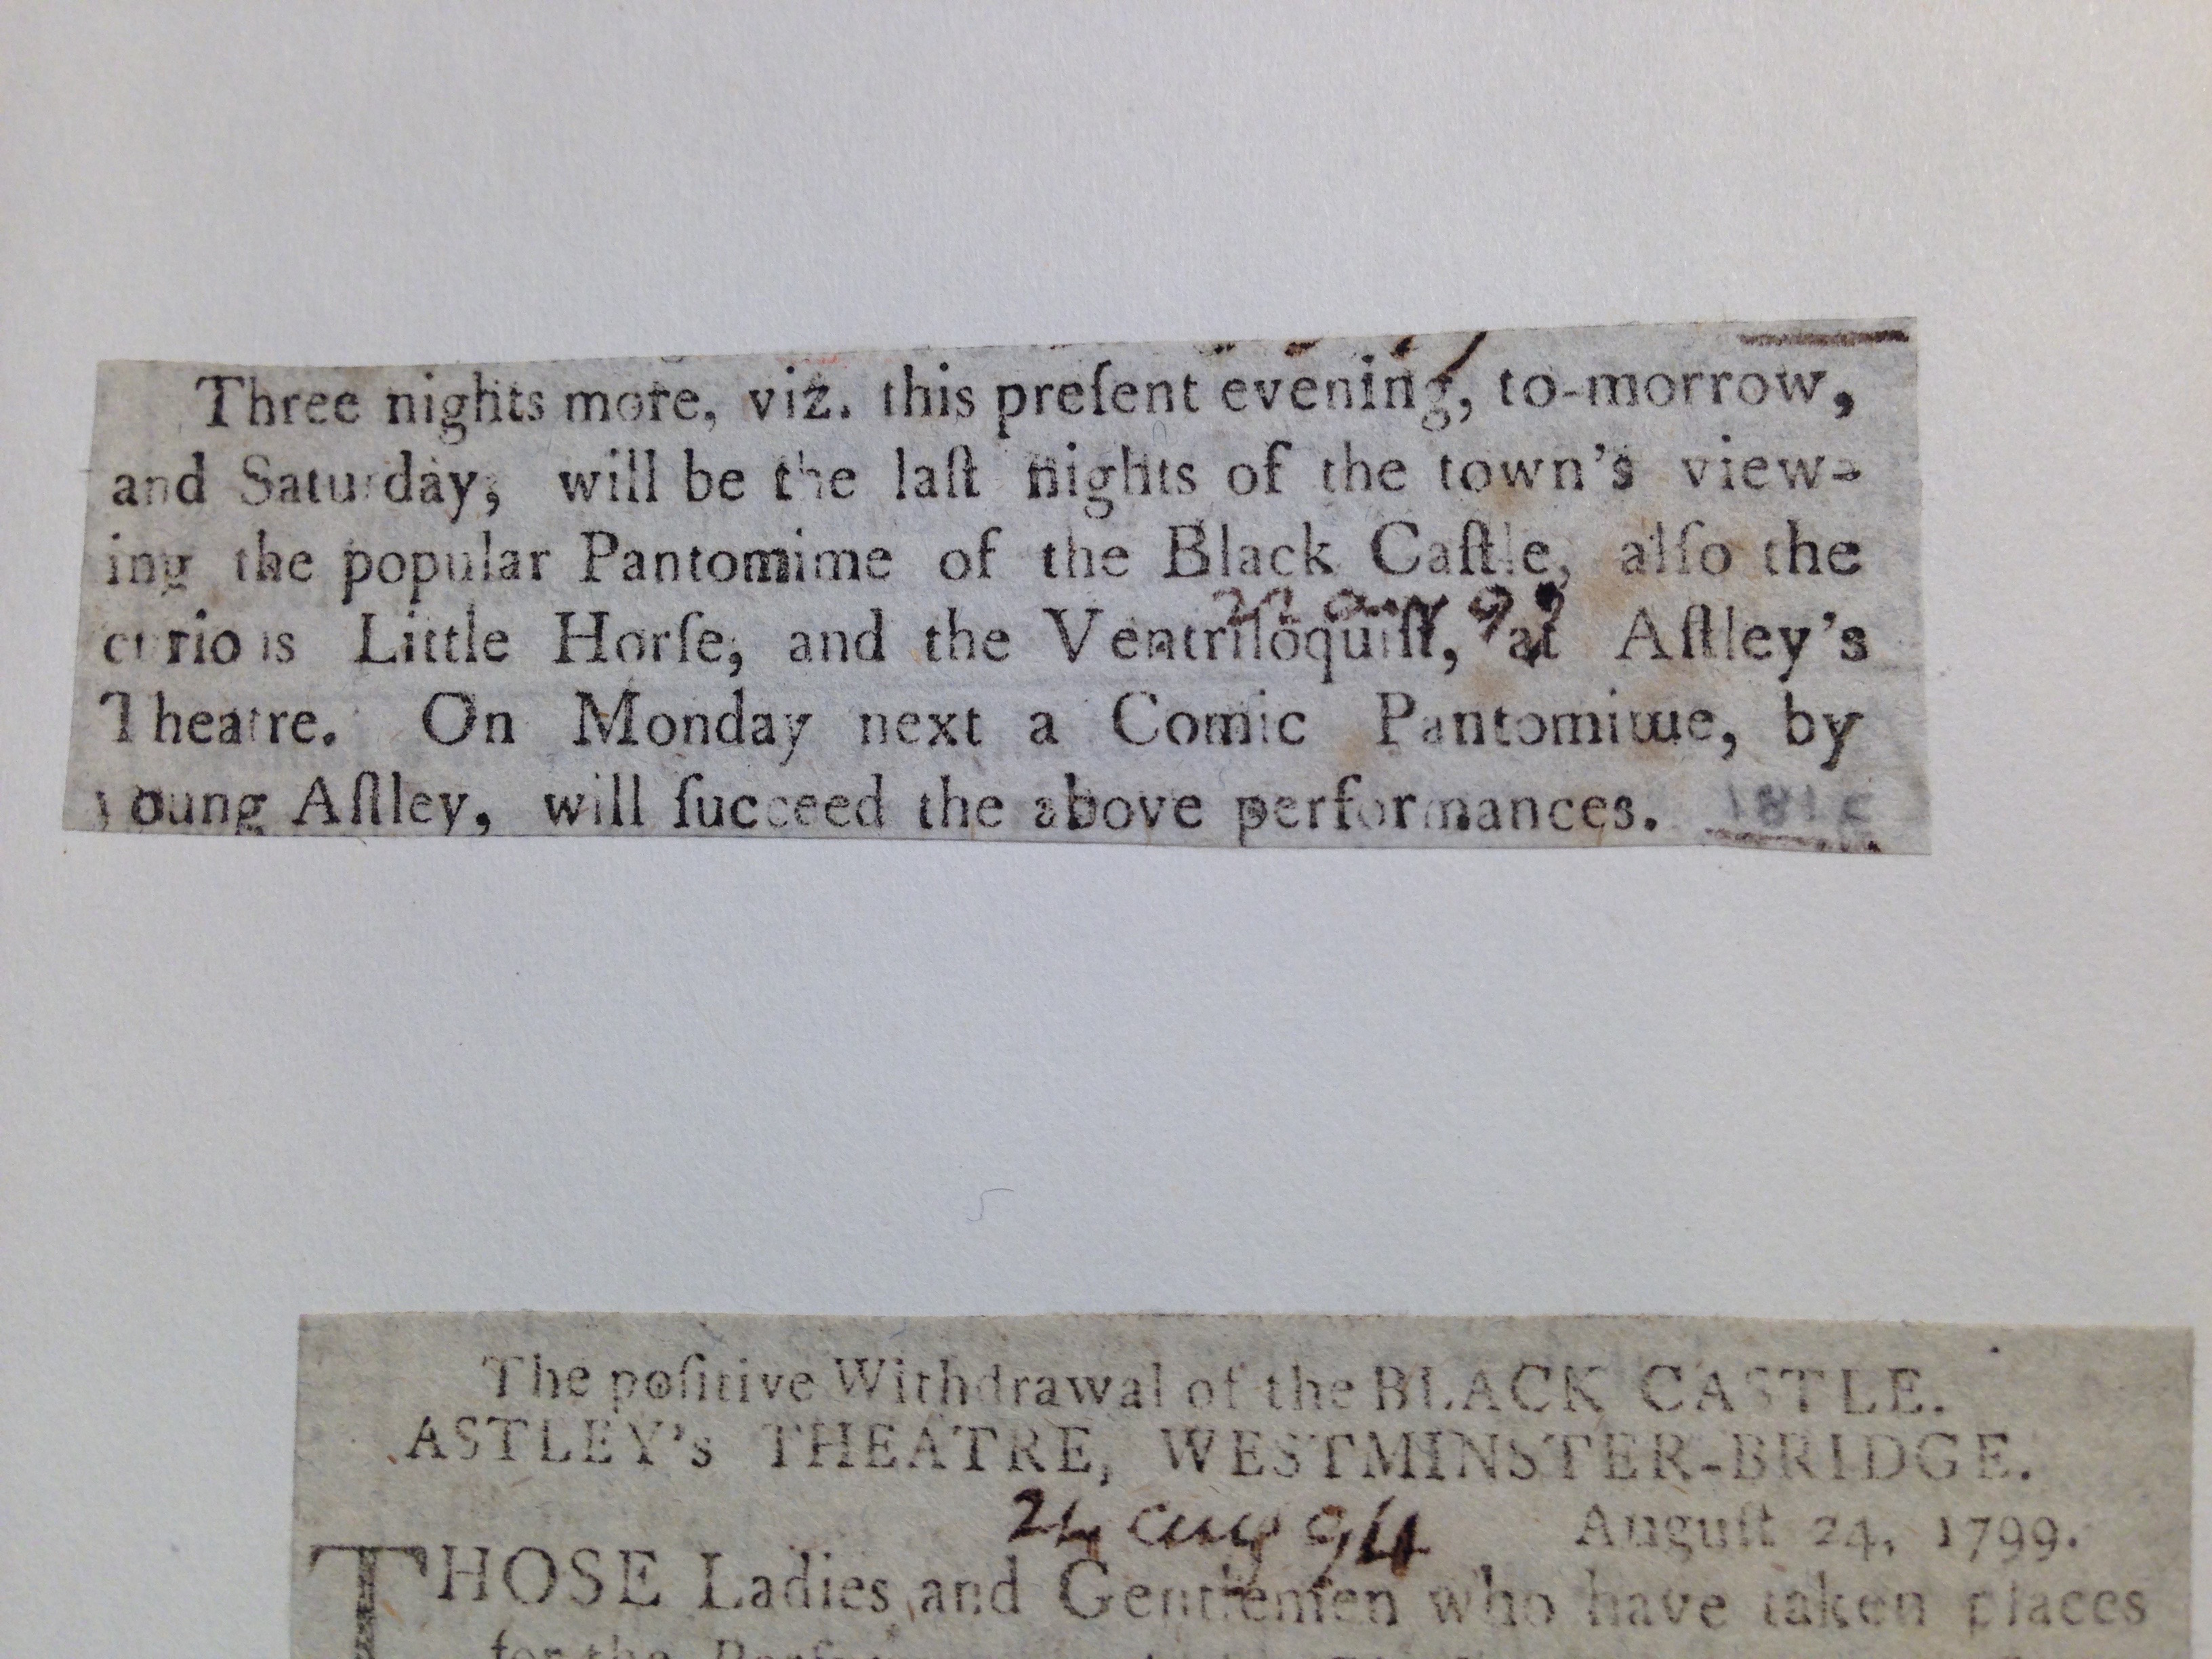 Three nights more, viz. this preſent evening, to-morrow,
and Saturday, will be the laſt nights of the town's view-
ing the popular Pantomime of the Black Caſtle, alſo the
22 aug 99
curious Little Horſe, and the Ventriloquiſt, at Aſtley's
Theatre. On Monday next a Comic Pantomime, by
young Aſtley, will ſucceed the above performances.
The poſitive Withdrawal of the BLACK CASTLE.
ASTLEY's THEATRE, WESTMINSTER-BRIDGE.
24 aug 94 Auguſt 24, 1799.
THOSE Ladies and Gentlemen who have taken places
for the